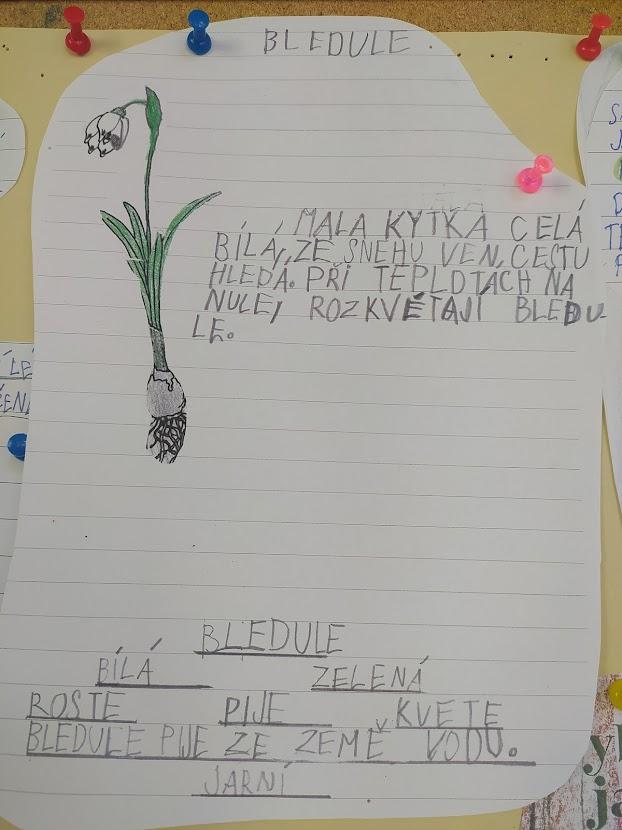 BLEDULE
MALA KYTKA CELÁ
BÍLÁ, ZE SNEHU VEN, CESTU
HLEDÁ. PŘI TEPLOTACH NA
NULE, ROZKVÉTAJÍ BLEDU
LE.
BLEDULE
BÍLÁ ZELENÁ
ROSTE PIJE KVETE
BLEDULE PIJE ZE ZEMĚ VODU.
JARNÍ